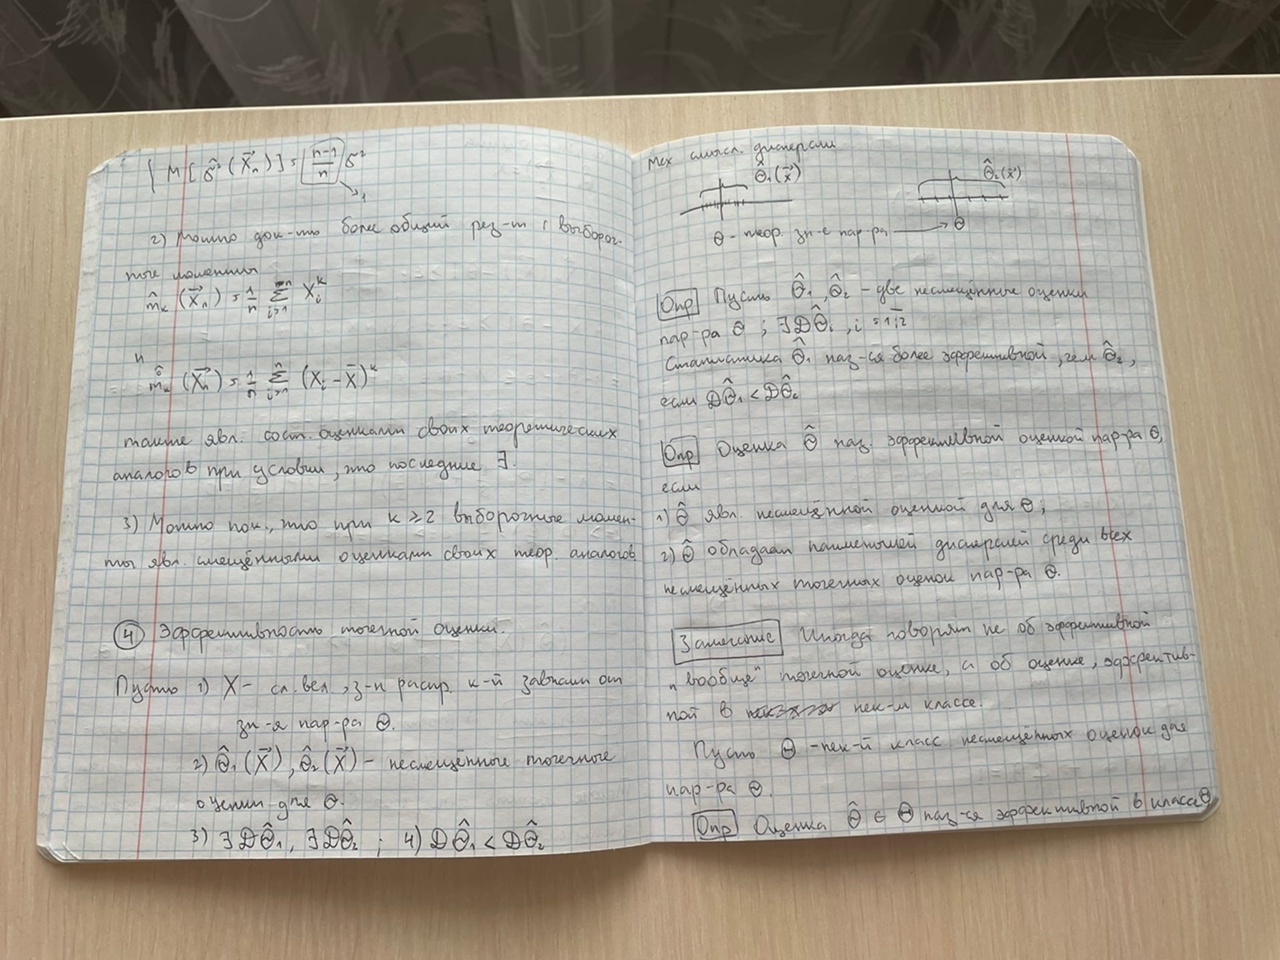 { M[σ̂²(X⃗ₙ)] = (n-1)/n σ²
→ 1
2) Можно док-ть более общий рез-т: выбороч-
ные моменты
m̂ₖ(X⃗ₙ) = 1/n Σⁿᵢ₌₁ Xᵢᵏ
и
m̂ₖ(X⃗ₙ) = 1/n Σⁿᵢ₌₁ (Xᵢ - X̄)ᵏ
также явл. сост. оценками своих теоретических
аналогов при условии, что последние ∃.
3) Можно пок., что при k ⩾ 2 выборочные момен-
ты явл. смещёнными оценками своих теор. аналогов
④ Эффективность точечной оценки.
Пусть 1) X - сл. вел., з-н распр. к-й зависит от
зн-я пар-ра θ.
2) θ̂₁(X⃗), θ̂₂(X⃗) - несмещённые точечные
оценки для θ.
3) ∃ Dθ̂₁, ∃ Dθ̂₂; 4) Dθ̂₁ < Dθ̂₂
Мех смысл. дисперсии
θ̂₁(x⃗) θ̂₂(x⃗)
θ - теор. зн-е пар-ра → θ
Опр Пусть θ̂₁, θ̂₂ - две несмещённые оценки
пар-ра θ; ∃ Dθ̂ᵢ, i = 1,2
Статистика θ̂₁ наз-ся более эффективной, чем θ̂₂,
если Dθ̂₁ < Dθ̂₂
Опр Оценка θ̂ наз. эффективной оценкой пар-ра θ,
если
1) θ̂ явл. несмещённой оценкой для θ;
2) θ̂ обладает наименьшей дисперсией среди всех
несмещённых точечных оценок пар-ра θ.
Замечание Иногда говорят не об эффективной
„вообще" точечной оценке, а об оценке, эффектив-
ной в нек-м классе.
Пусть Θ - нек-й класс несмещённых оценок для
пар-ра θ.
Опр Оценка θ̂ ∈ Θ наз-ся эффективной в классе Θ